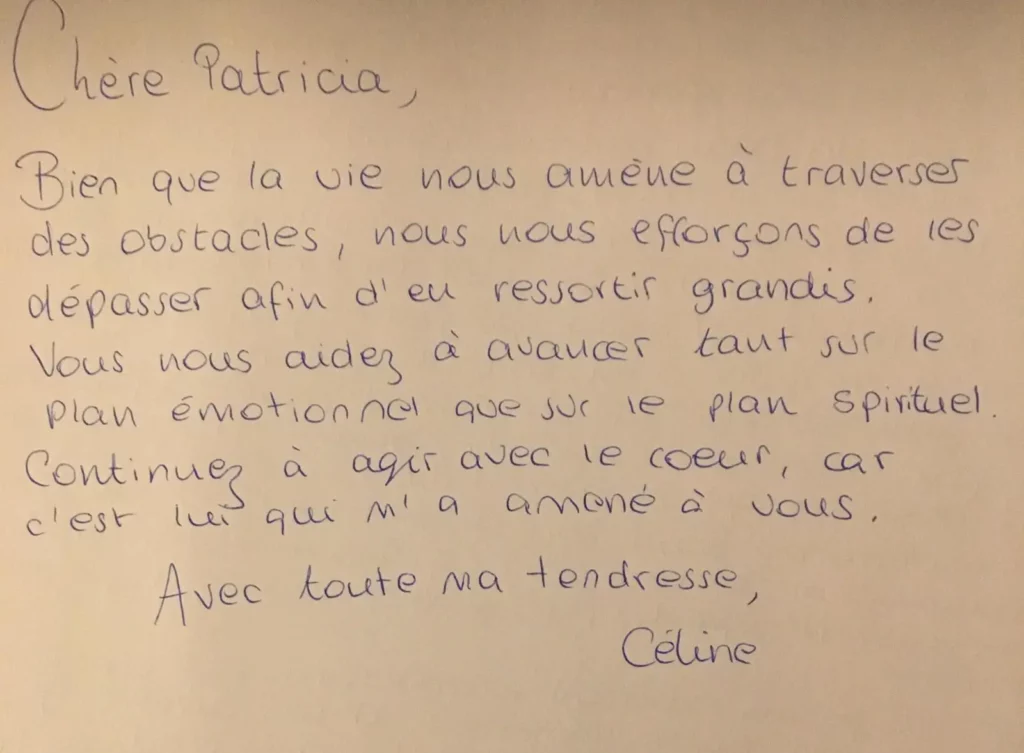 Chère Patricia,
Bien que la vie nous amène à traverser
des obstacles, nous nous efforçons de les
dépasser afin d'en ressortir grandis.
Vous nous aidez à avancer tant sur le
plan émotionnel que sur le plan spirituel.
Continuez à agir avec le coeur, car
c'est lui qui m'a amené à vous.
Avec toute ma tendresse,
Céline